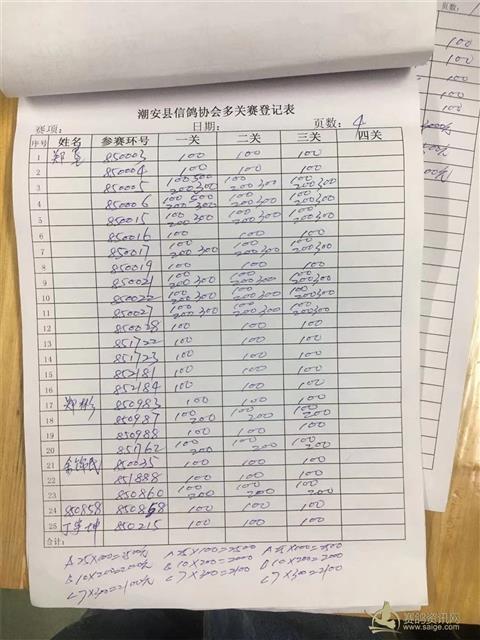 潮安县信鸽协会多关赛登记表
赛项： 日期： 页数：4
序号 姓名 参赛环号 一关 二关 三关 四关
1 郑 850003 100 100 100
2 850004 100 100 100
3 850005 100 200 300 100 200 300 100 200 300
4 850006 100 200 300 100 200 300 100 200 300
5 850015 100 200 300 100 200 300 100 200 300
6 850016 100 100 100
7 850017 100 200 300 100 200 300 100 200 300
8 850019 100 100 100
9 850021 100 200 300 100 200 300 100 200 300
10 850022 100 200 300 100 200 300 100 200 300
11 850027 100 200 300 100 200 300 100 200 300
12 850028 100 100 100
13 851722 100 100 100
14 851723 100 100 100
15 852181 100 100 100
16 852184 100 100 100
17 郑彬 850983 100 100 100
18 850987 100 200 100 200 100 200
19 850988 100 100 100
20 851762 100 200 100 200 100 200
21 850035 100 100 100
22 851888 100 100 100
23 850860 100 200 100 200 100 200
24 850858 850868 100 100 100
25 坤 850215 100 100 100
合计：
A 25×100=2500 A 25×100=2500 A 25×100=2500
B 10×200=2000 B 10×200=2000 B 10×200=2000
C 7×300=2100 C 7×300=2100 C 7×300=2100
页数：
100
100
100
100
赛鸽资讯网
www.saige.com